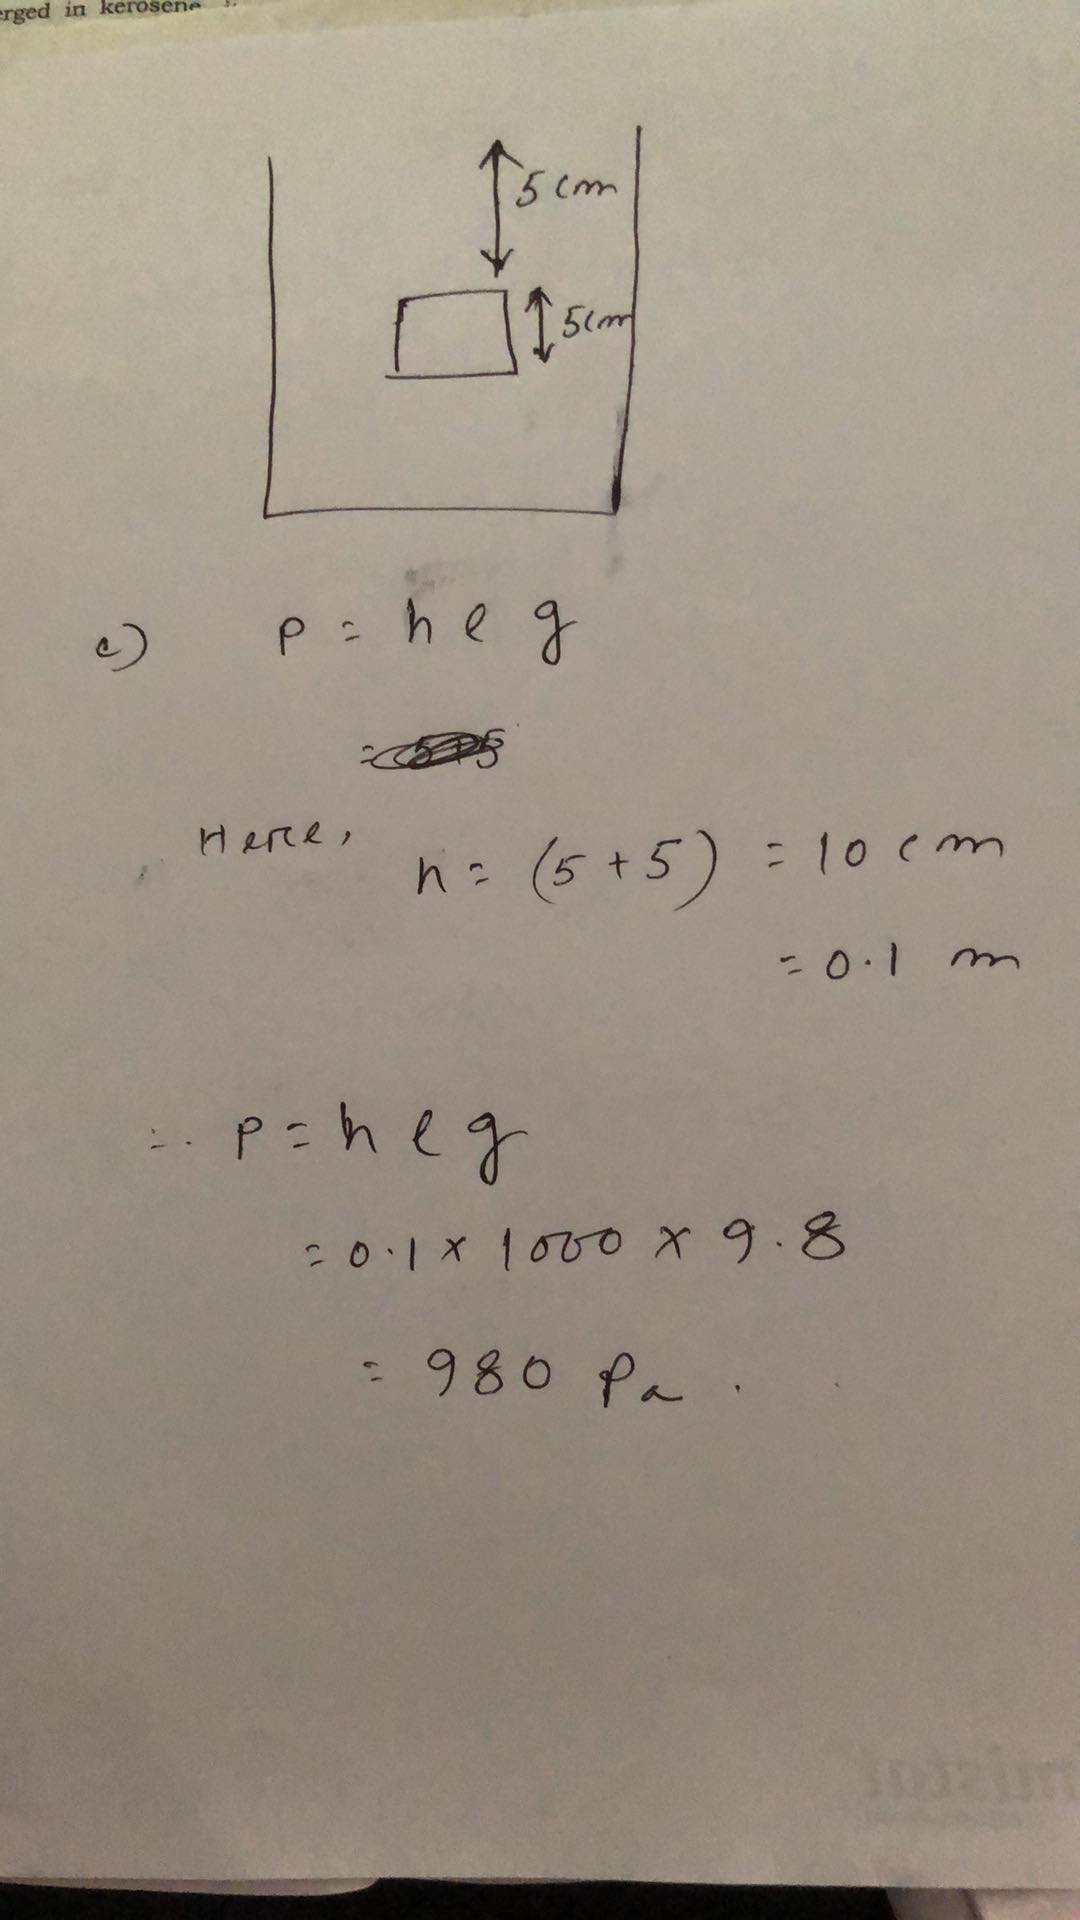 erged in kerosene
5 cm
5cm
c) P = h ρ g
= 5+5
Here,
h = (5 + 5) = 10 cm
= 0.1 m
∴ P = h ρ g
= 0.1 x 1000 x 9.8
= 980 Pa .